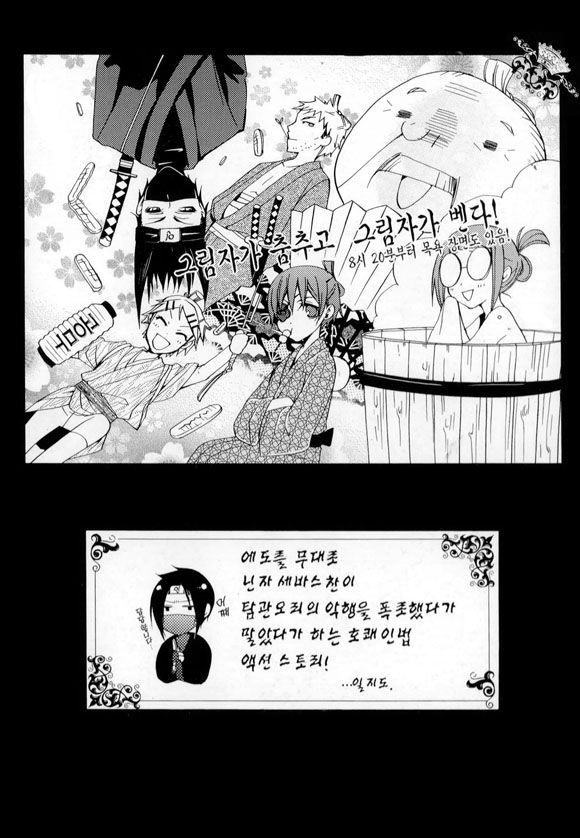 그림자가 춤추고 그림자가 벤다!
8시 20분부터 목욕 장면도 있음!
에도를 무대로
닌자 세바스찬이
탐관오리의 악행을 폭로했다가
말았다가 하는 호쾌 인법
액션 스토리!
...일지도.
어째